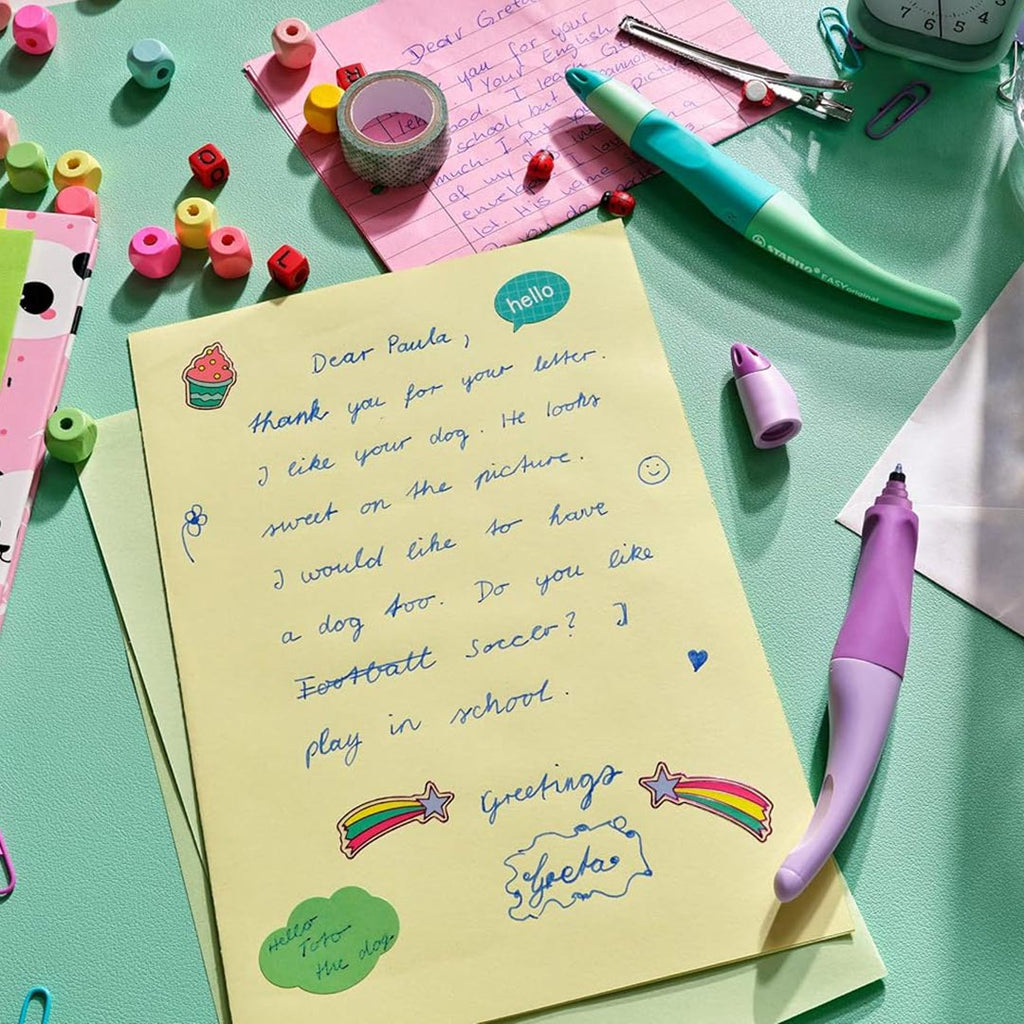 Dear Greta
you for your
Your English
good. I learn
school, but I cannot
much. I put
of my dog
envelope. I
lot. His name
do
7 6 5
STABILO EASYoriginal
hello
Dear Paula,
thank you for your letter.
I like your dog. He looks
sweet on the picture.
I would like to have
a dog too. Do you like
Football Soccer? I
play in school.
Greetings
Greta
Hello
Toto
the dog.